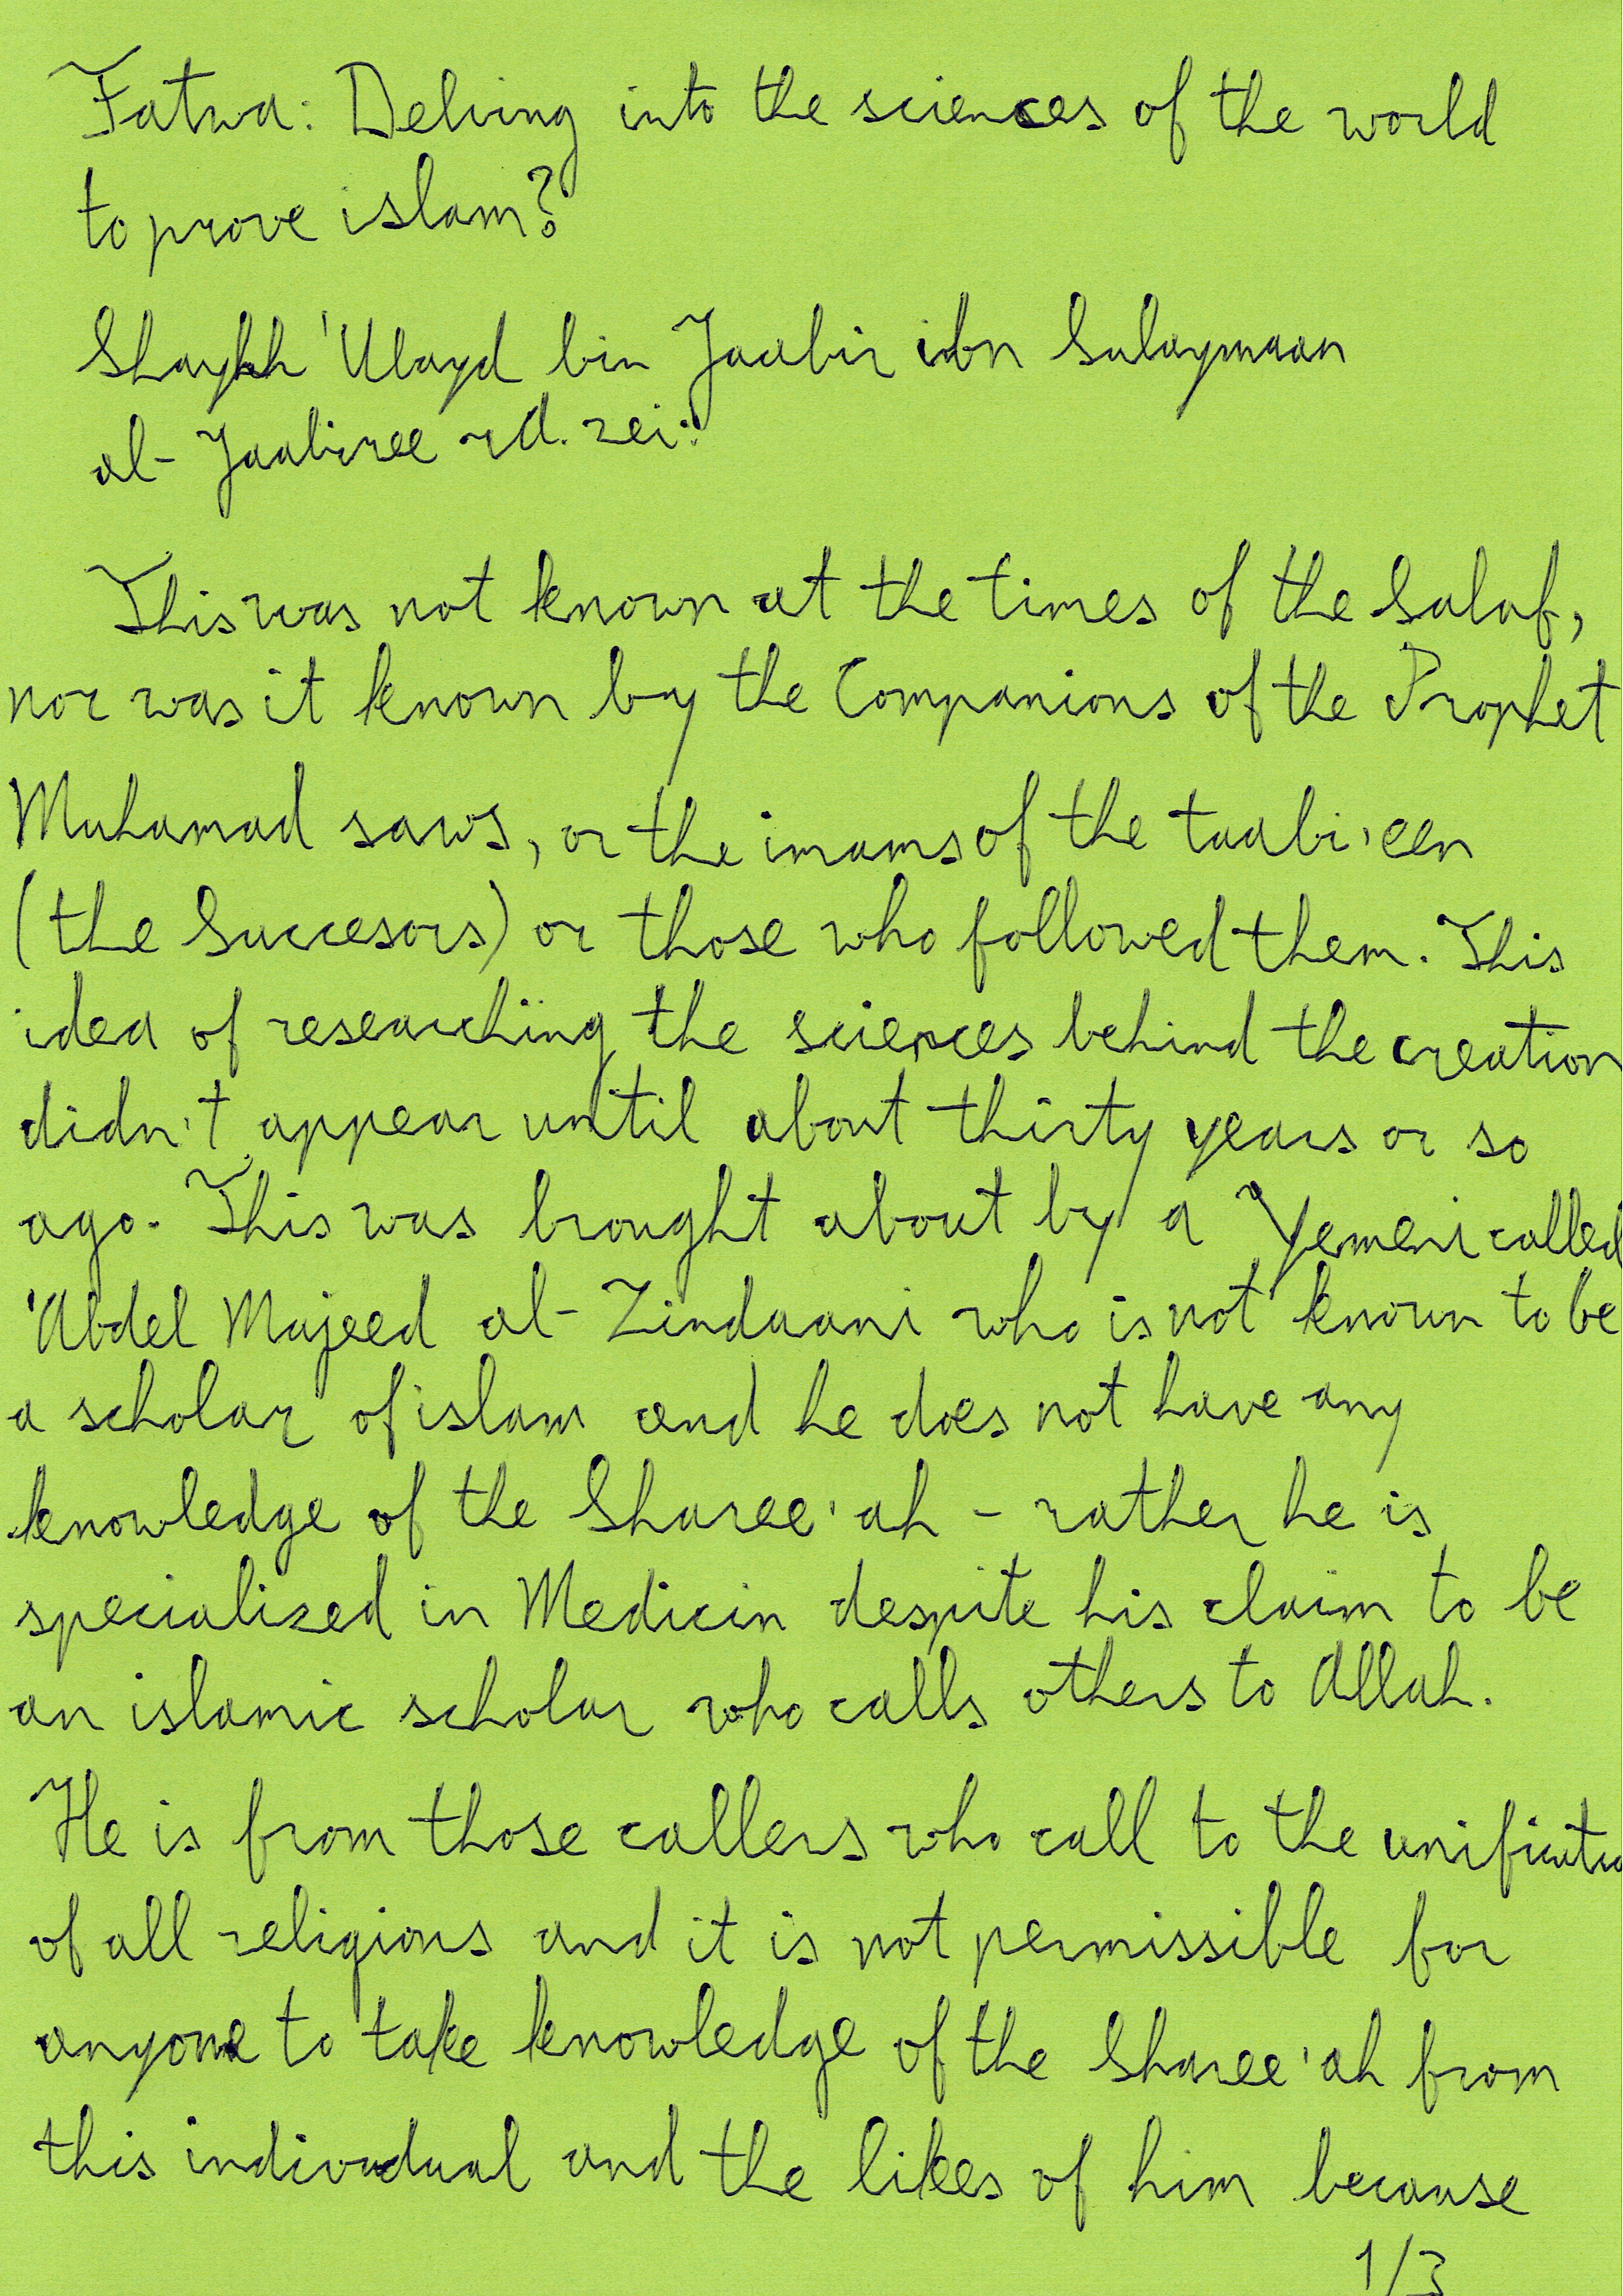 Fatwa: Delving into the sciences of the world
to prove islam?
Shaykh 'Ubayd bin Jaabir ibn Sulaymaan
al-Jaabiree rd. zei:
This was not known at the times of the Salaf,
nor was it known by the Companions of the Prophet
Muhamad saws, or the imams of the taabi'een
(the Succesors) or those who followed them. This
idea of researching the sciences behind the creation
didn't appear until about thirty years or so
ago. This was brought about by a Yemeni called
'Abdel Majeed al-Zindaani who is not known to be
a scholar of islam and he does not have any
knowledge of the Sharee'ah - rather he is
specialized in Medicin despite his claim to be
an islamic scholar who calls others to Allah.
He is from those callers who call to the unificatio
of all religions and it is not permissible for
anyone to take knowledge of the Sharee'ah from
this individual and the likes of him because
1/3